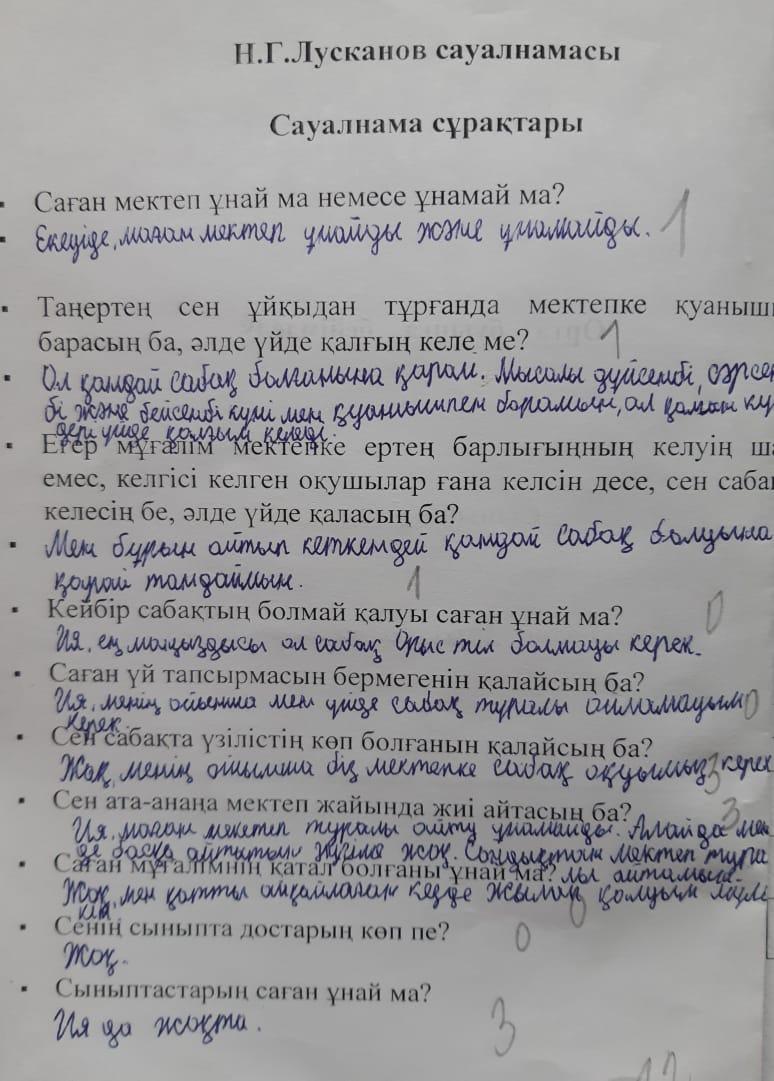 Н.Г.Лусканов сауалнамасы
Сауалнама сұрақтары
Саған мектеп ұнай ма немесе ұнамай ма?
Екеуіде, маған мектеп ұнайды және ұнамайды. 1
Таңертең сен ұйқыдан тұрғанда мектепке қуаныш
барасың ба, әлде үйде қалғың келе ме? 1
Ол қандай сабақ болғанына қарай. Мысалы дүйсенбі, сәрсен
бі және бейсенбі күні мен қуанышпен барамын, ал қалған кү
дері үйде қалғым келеді.
Егер мұғалім мектепке ертең барлығыңның келуің ша
емес, келгісі келген оқушылар ғана келсін десе, сен саба
келесің бе, әлде үйде қаласың ба?
Мен бұрын айтып кеткендей қандай сабақ болуына
қарай таңдаймын. 1
Кейбір сабақтың болмай қалуы саған ұнай ма? 0
Ия, ең маңыздысы ол сабақ Орыс тіл болмауы керек.
Саған үй тапсырмасын бермегенін қалайсың ба?
Ия, менің ойымша мен үйде сабақ туралы ойламауым 0
керек.
Сен сабақта үзілістің көп болғанын қалайсың ба?
Жоқ, менің ойымша біз мектепке сабақ оқуымыз 3 керек
Сен ата-анаңа мектеп жайында жиі айтасың ба? 3
Ия, маған мекетеп туралы айту ұнамайды. Алайда мен
де басқа айтатын жоқ. Сондықтан мектеп тура
Саған мұғалімнің қатал болғаны ұнай ма? лы айтамын.
Жоқ, мен қатты айқайлаған кезде жылап қалуым мүмкі
0
Сенің сыныпта достарың көп пе? 0
Жоқ.
Сыныптастарың саған ұнай ма?
Ия да жоқта. 3